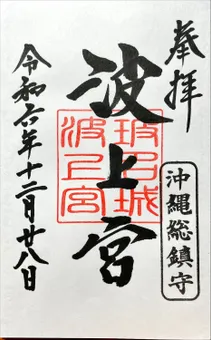 奉拝
沖縄総鎮守
波上宮
波上宮
令和六年十二月廿八日